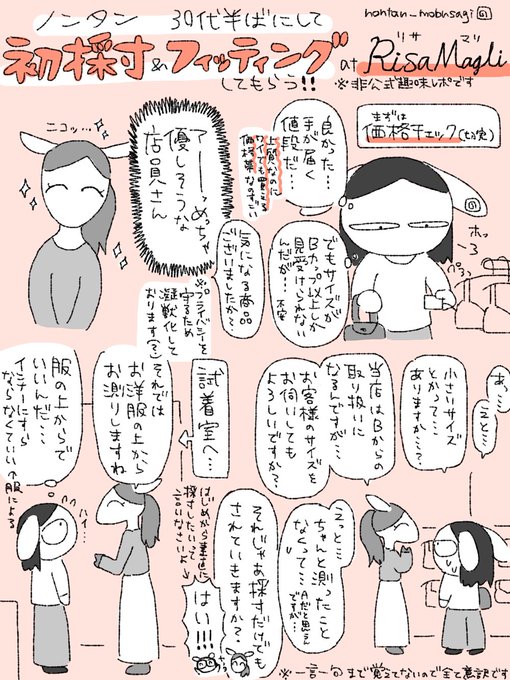 ノンタン 30代半ばにして
nontan_mobusagi
初採寸&フィッティング
at RisaMagli
リサ マリ
してもらう!!
※非公式趣味レポです
まずは
価格チェック(切実)
良かった…
手が届く
値段だ…
上質なのに
ワイでも買える
価格帯なのすごい
ホッ
～
ろ
でもサイズが
Bカップ以上しか
見受けられない
んだが…
不安
ニコッ…
アーーっめっちゃ
優しそうな
店員さん
気になる商品
ございましたか?
※プライバシーを
守るため
擬獣化して
おります(?)
あっ…
えと…
小さいサイズ
とかって…
ありますか…?
当店はBからの
取り扱いに
なるんですが…
お客様のサイズを
お伺いしても
よろしいですか?
えっと…
ちゃんと測ったこと
なくって…
Aだと思う
んですが…
それじゃあ採寸だけでも
されていきますか?
はい!!!
はじめから素直に
採寸したいって
言いなさいよ
試着室へ…
それでは
お洋服の上から
お測りしますね
ハイ…
服の上からで
いいんだ…
インナーにすら
ならなくていい
※服による
※一言一句まで覚えてないので全て意訳です